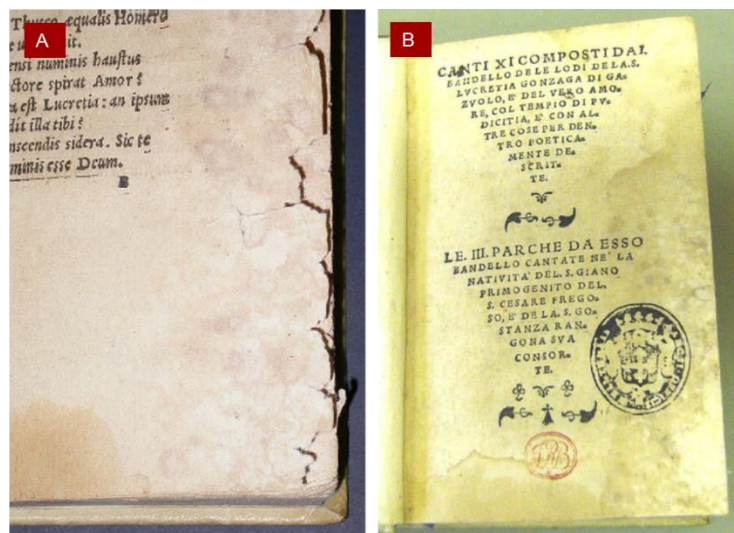 A
æqualis Homero
sit.
ensi numinis haustus
ctore spirat Amor?
est Lucretia: an ipsum
dit illa tibi?
nscendis sidera. Sic te
minis esse Deum.
B
B
CANTI XI COMPOSTI DAL
BANDELLO DE LE LODI DE LA.S.
LUCRETIA GONZAGA DI GA-
ZVOLO, E' DEL VERO AMO-
RE, COL TEMPIO DI PV-
DICITIA, E' CON AL-
TRE COSE PER DEN-
TRO POETICA-
MENTE DE-
SCRIT-
TE.
LE. III. PARCHE DA ESSO
BANDELLO CANTATE NE' LA
NATIVITA' DEL. S. GIANO
PRIMOGENITO DEL.
S. CESARE FREGO-
SO, E' DE LA. S. GO-
STANZA RAN-
GONA SVA
CONSOR-
TE.